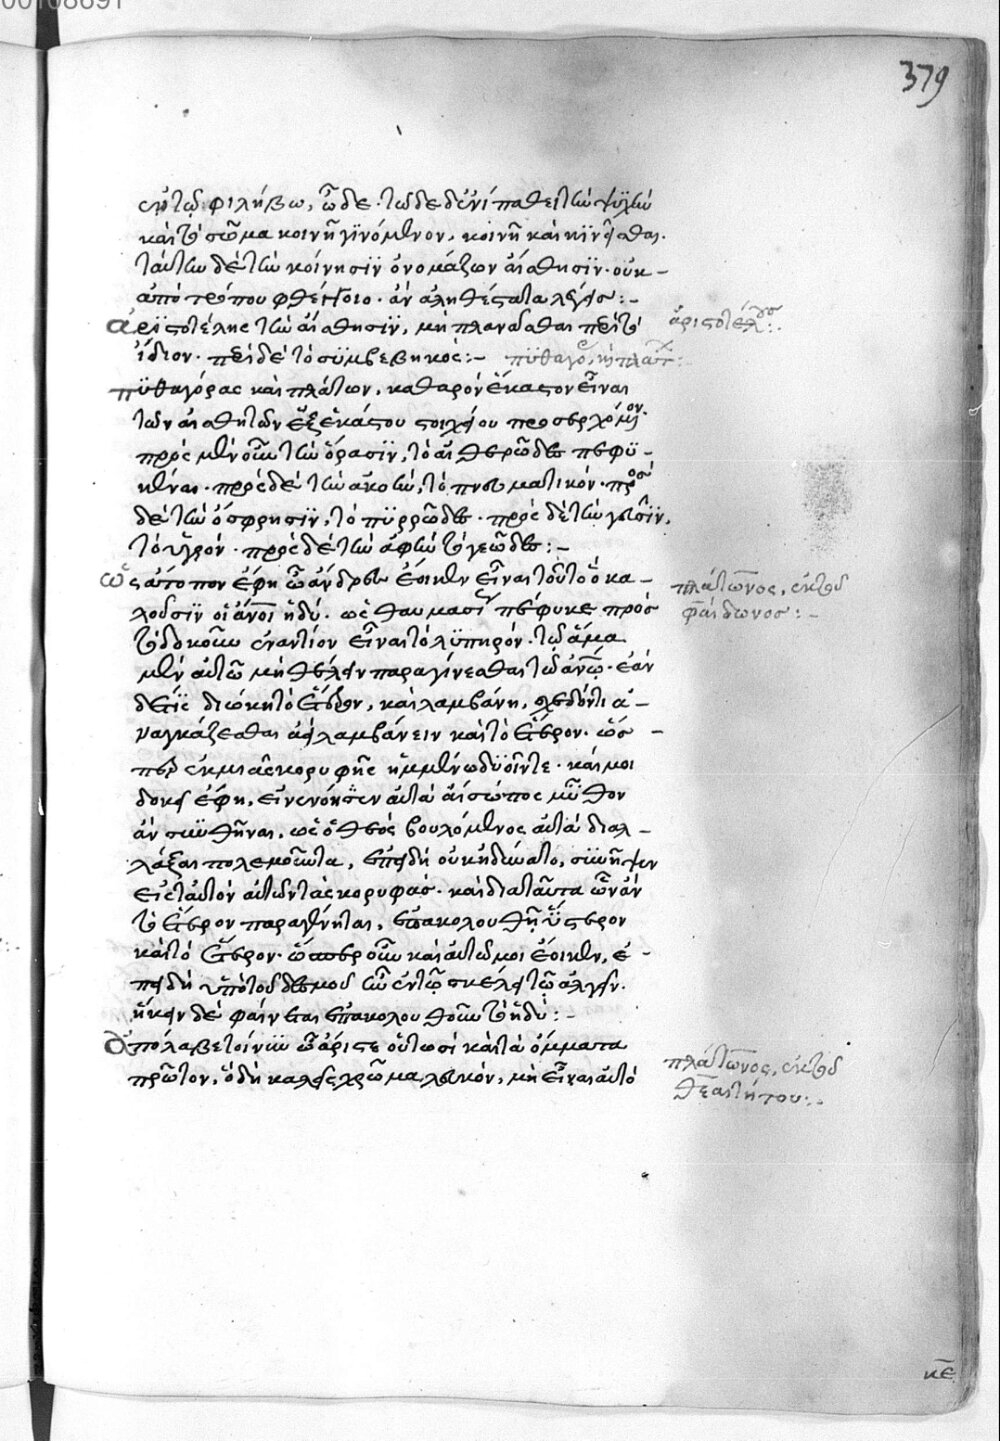 379
ἐν τῷ φιλήβω, ὧδε· τω δε ἐνὶ πάθει τὴν ψυχὴν
καὶ τὸ σῶμα κοινῆ γϊνόμενον, κοινῆ καὶ κϊνεῖσθαι·
ταύτην δὲ τὴν κοίνησϊν ὀνομάζων αἴσθησϊν· οὐκ
ἀπὸ τρόπου φθέγγοιο· ἂν ἀληθέστατα λέγεις:-
ἀρϊστοτέλης τὴν αἴσθησϊν, μὴ πλανᾶσθαι περὶ τὸ
ἀριστοτέλους:.
ἴδιον· περὶ δὲ τὸ συμβεβηκός:-
πϋθαγό, κ πλάτ:
πϋθαγόρας καὶ πλάτων, καθαρὸν ἕκαστον εἶναι
τῶν αἰσθητῶν ἐξ ἑκάστου στοιχείου προσερχόμενον·
πρὸς μὲν οὖν τὴν ὅρασϊν, τὸ αἰθερῶδες πεφϋ-
κέναι· πρὸς δὲ τὴν ἀκοὴν, τὸ πνευματικόν· πρὸσ
δὲ τὴν ὄσφρησϊν, τὸ πϋρρῶδες· πρὸς δὲ τὴν γεῦσϊν,
τὸ ὑγρόν· πρὸς δὲ τὴν ἀφὴν τὸ γεῶδες:-
ὡς ἄτοπον ἔφη ὦ ἄνδρες ἔοικεν εἶναι τοῦτο ὃ κα-
πλάτωνος, ἐκ τοῦ
λοῦσϊν οἱ ἄνοι ἡδύ· ὡς θαυμασί πέφυκε πρὸσ
φαίδωνοσ:-
τὸ δοκοῦν ἐναντίον εἶναι τὸ λϋπηρόν· τῶ ἅμα
μὲν αὐτῶ μὴ θέλειν παραγίνεσθαι τῶ ἀνῷ· ἐὰν
δέ τϊς διώκη τὸ ἕτερον, καὶ λαμβάνη, σχεδόν τι ἀ-
ναγκάζεσθαι ἀεὶ λαμβάνειν καὶ τὸ ἕτερον· ὥσ-
περ ἐκ μιᾶς κορυφῆς ἡμμένω δϋ ὄντε· καί μοι
δοκεῖ ἔφη, εἰ ἐνενόησεν αὐτὰ αἴσωπος μῦθον
ἂν συνθῆναι, ὡς ὁ θεὸς βουλόμενος αὐτὰ διαλ-
λάξαι πολεμοῦντα, ἐπειδὴ οὐκ ἠδύνατο, συνῆψεν
εἰς ταὐτὸν αὐτῶν τὰς κορυφάσ· καὶ διὰ ταῦτα ὧν ἂν
τὸ ἕτερον παραγένηται, ἐπακολουθῆ ὕστερον
καὶ τὸ ἕτερον· ὥσπερ οὖν καὶ αὐτῶ μοι ἔοικεν, ἐ-
πειδὴ ὑπὸ τοῦ δεσμοῦ ὦν ἐν τῷ σκέλει τὸ ἀλγεῖν·
ἥκειν δὲ φαίνεται ἐπακολουθοῦν τὸ ἡδύ:-
ὑπόλαβε τοίνυν ὦ ἄριστε οὑτωσὶ κατὰ τὰ ὄμματα
πλάτωνος, ἐκ τοῦ
πρῶτον, ὃ δὴ καλεῖς χρῶμα λευκόν, μὴ εἶναι αὐτὸ
θεαιτήτου:.
κε